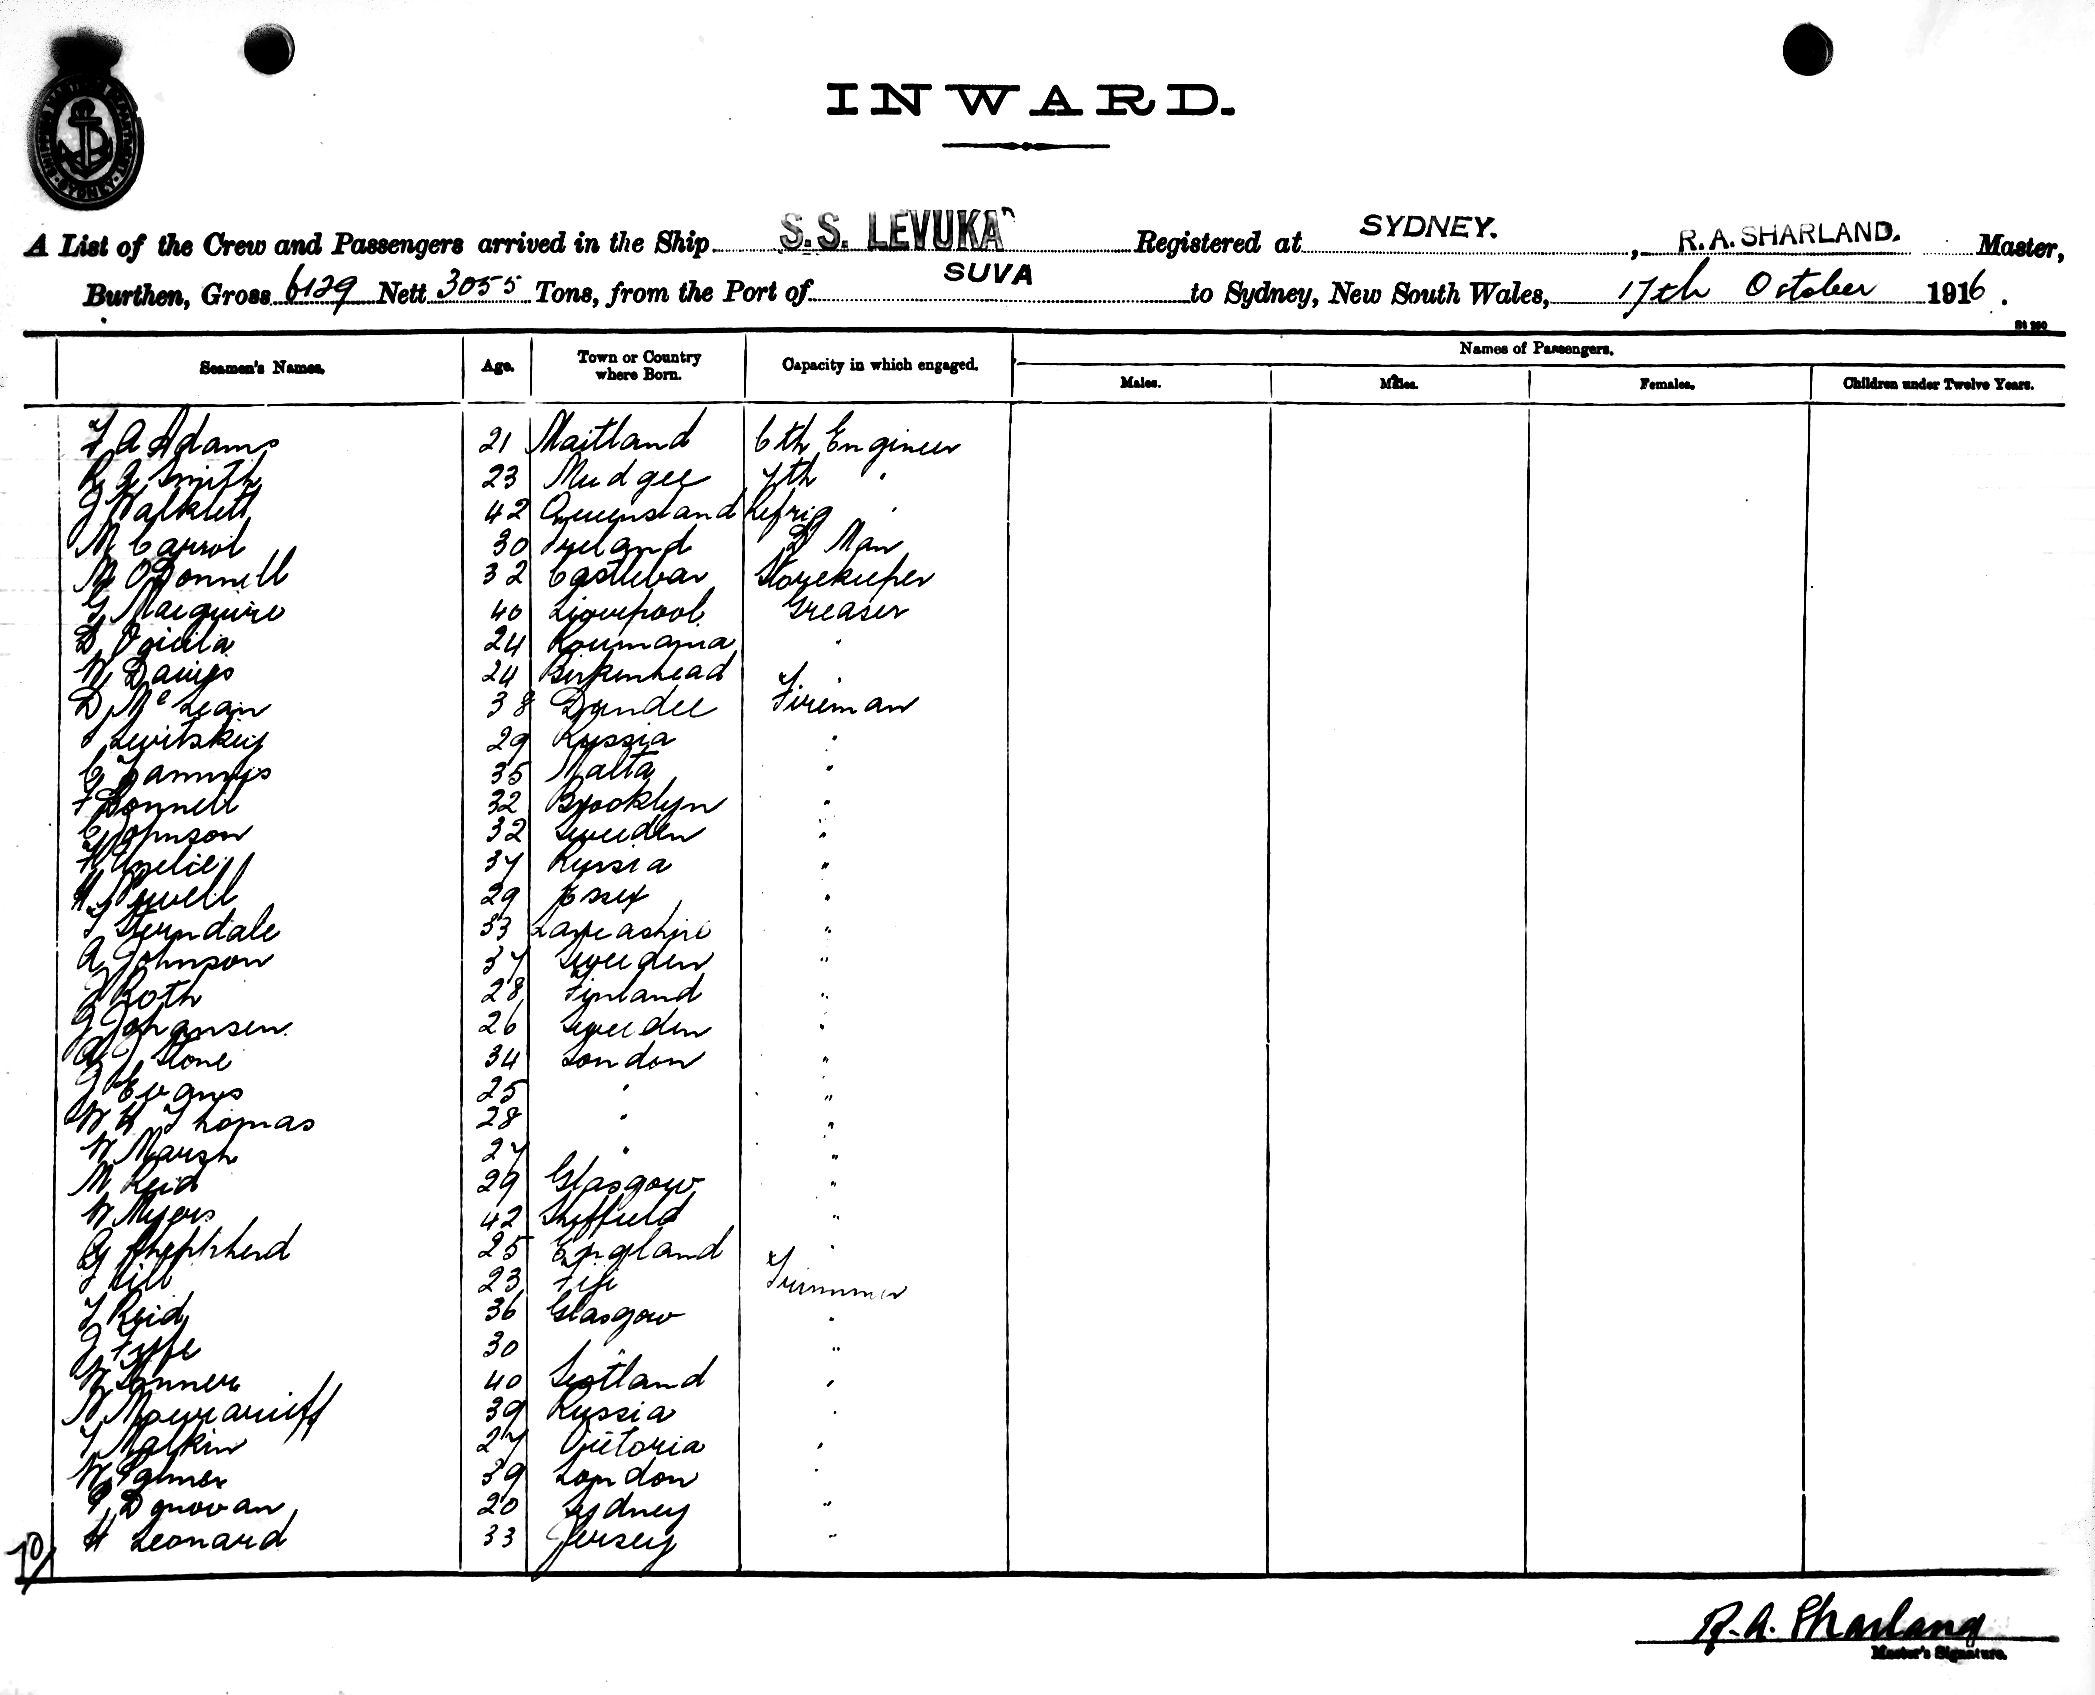 INWARD.
A List of the Crew and Passengers arrived in the Ship S.S. LEVUKA Registered at SYDNEY. , R.A. SHARLAND. Master,
Burthen, Gross 6129 Nett 3055 Tons, from the Port of SUVA to Sydney, New South Wales, 17th October 1916.
Seamen's Names. Age. Town or Country where Born. Capacity in which engaged. Names of Passengers.
Males. Males. Females. Children under Twelve Years.
A Adams 21 Maitland 6th Engineer
Smith 23 Mudgee 7th "
J Walklett 42 Queensland Refrig "
M Carrol 30 Ireland D Man
M O'Donnell 32 Castlebar Storekeeper
G Macguire 40 Liverpool Greaser
D 24 Roumania "
W Davies 24 Birkenhead "
D McLean 38 Dundee Fireman
Levitskiy 29 Russia "
C 35 Malta "
F Donnell 32 Brooklyn "
C Johnson 32 Sweden "
37 Russia "
H Powell 29 Essex "
T Sterndale 33 Lancashire "
A Johnson 37 Sweden "
J Roth 28 Finland "
G Johansen 26 Sweden "
A J Stone 34 London "
J Evans 25 " "
W H Thomas 28 " "
W Marsh 27 " "
M Reid 29 Glasgow "
W Myers 42 Sheffield "
G Shephherd 25 England "
J 23 Fiji Trimmer
T Reid 36 Glasgow "
J Fyffe 30 " "
W 40 Scotland "
39 Russia "
T Malkin 27 Victoria "
W Palmer 39 London "
P Donovan 20 Sydney "
H Leonard 33 Jersey "
R. A. Sharland
Master's Signature.